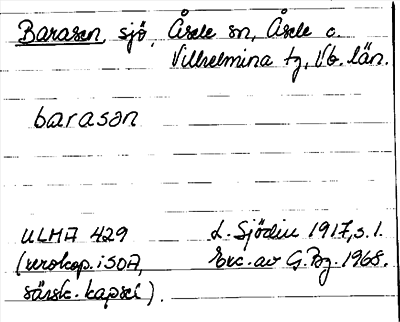 Barasen, sjö, Åsele sn, Åsele o.
Vilhelmina tg, Vb. län.
barasən
ULMA 429 L. Sjödin 1917, s. 1.
(xerokop. i SOA, Exc. av G. Bg. 1968.
särsk. kapsel).